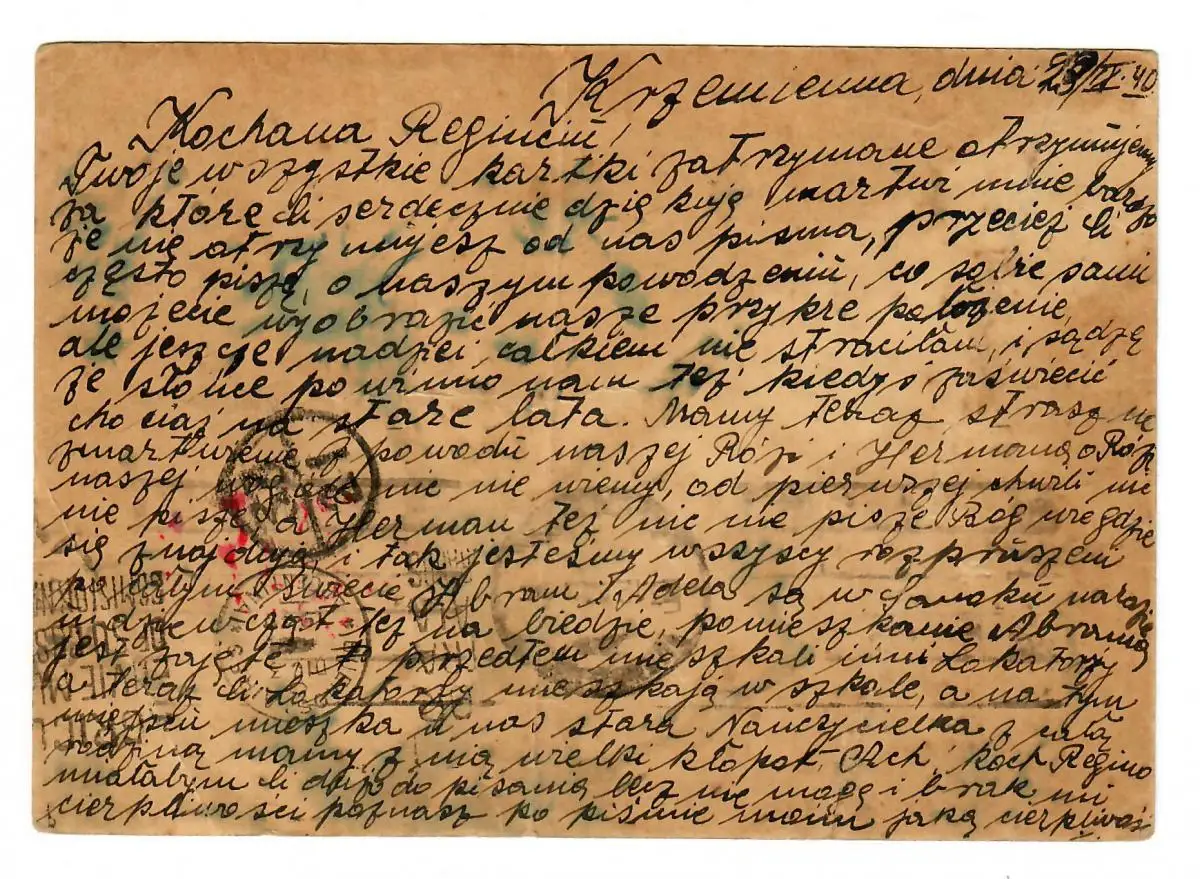 Krzemienna, dnia 23/IX.40.
Kochana Reginciu,
Twoje wszystkie kartki zatrzymane otrzymujemy
za które Ci serdecznie dziękuję martwi mnie bardzo
że nie otrzymujesz od nas pisma, przeciej Ci
często piszę, o naszym powodzeniu, co sobie sami
mojecie wyobrazić nasze przykre położenie,
ale jeszcze nadzei całkiem nie straciłam, i sądzę
że słońce powinno nam też kiedyś zaświecić
chociaż na stare lata. Mamy teraz straszne
zmartwienie z powodu naszej Rózi i Hermana o Rózi
naszej nic nie wiemy, od pierwszej chwili nic
nie pisze, a Herman też nic nie pisze Bóg wie gdzie
się znajdują, i tak jesteśmy wszyscy rozpruszeni
po całym świecie Abram i Adela są w Sanoku narazie
też na biedzie, pomieszkanie Abrama
jest zajęte, przedtem mieszkali inni Lokatorzy
a teraz Ci Lokatorzy mieszkają w szkole, a na tym
miejscu mieszka u nas stara Nauczycielka z całą
rodziną mamy z nią wielki kłopot. Ach, koch Regino
miałabym Ci dużo do pisania lecz nie mogę i brak mi
cierpliwości poznasz po piśmie moim jaką cierpliwość